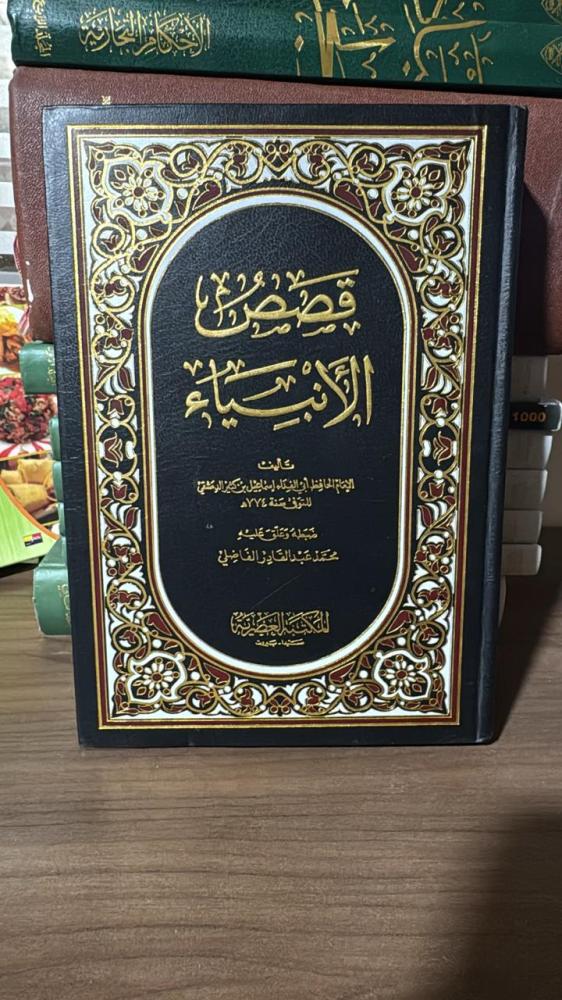 الأحكام التجارية
قصص
الأنبياء
تأليف
الإمام الحافظ أبي الفداء إسماعيل بن كثير الدمشقي
المتوفى سنة ٧٧٤هـ
ضبطه وعلق عليه
محمد عبد القادر الفاضلي
المكتبة العصرية
صيدا - بيروت
1000